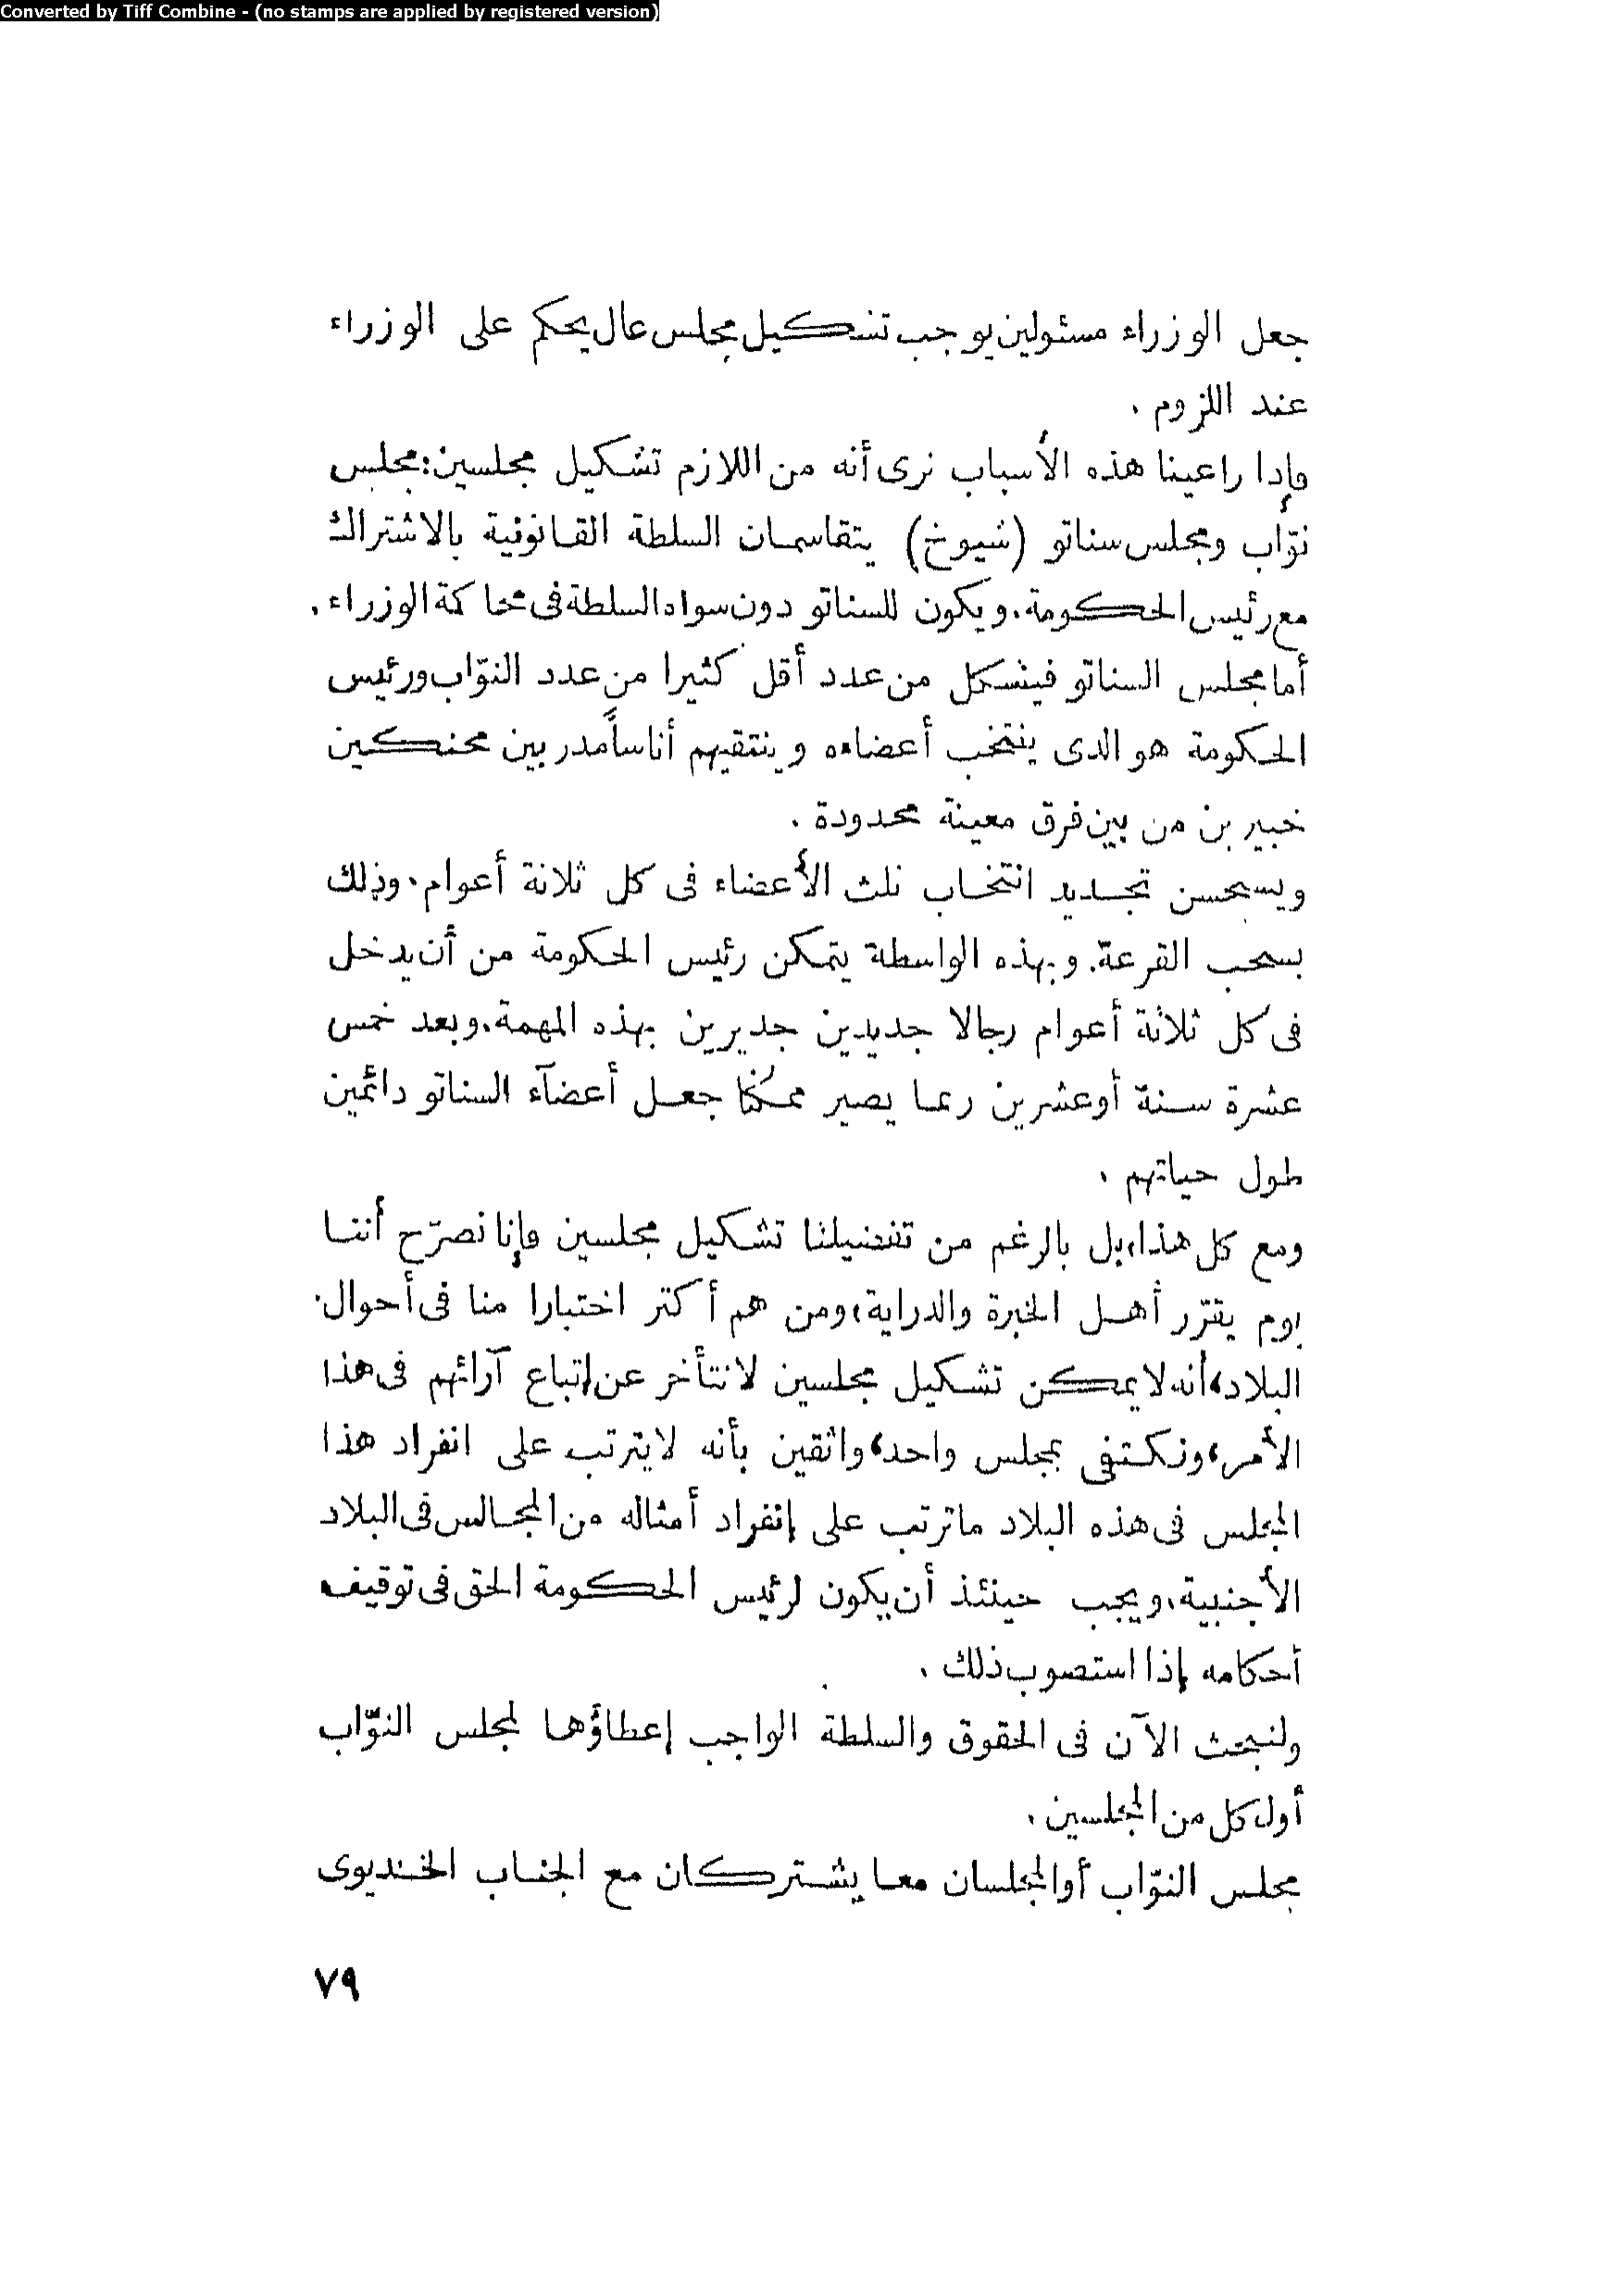 Converted by Tiff Combine - (no stamps are applied by registered version)
جعل الوزراء مسئولين يوجب تشكيل مجلس عال يحكم على الوزراء
عند اللزوم .
فإذا راعينا هذه الأسباب نرى أنه من اللازم تشكيل مجلسين : مجلس
نوّاب ومجلس سناتو (شيوخ) يتقاسمان السلطة القانونية بالاشتراك
مع رئيس الحكومة . ويكون للسناتو دون سواه السلطة فى محاكمة الوزراء .
أما مجلس السناتو فيشكل من عدد أقل كثيرا من عدد النوّاب ورئيس
الحكومة هو الذى ينتخب أعضاءه وينتقيهم أناساً مدربين محنكين
خبيرين من بين فرق معينة محدودة .
ويستحسن تجديد انتخاب ثلث الأعضاء فى كل ثلاثة أعوام . وذلك
بسحب القرعة . وبهذه الواسطة يتمكن رئيس الحكومة من أن يدخل
فى كل ثلاثة أعوام رجالا جديدين جديرين بهذه المهمة . وبعد خمس
عشرة سنة أو عشرين ربما يصير ممكنًا جعل أعضآء السناتو دائمين
طول حياتهم .
ومع كل هذا، بل بالرغم من تفضيلنا تشكيل مجلسين فإنا نصرّح أننا
يوم يقرّر أهل الخبرة والدراية، ومن هم أكثر اختبارا منا فى أحوال
البلاد، أنه لا يمكن تشكيل مجلسين لا نتأخر عن إتباع آرائهم فى هذا
الأمر، ونكتفى بمجلس واحد، واثقين بأنه لا يترتب على انفراد هذا
المجلس فى هذه البلاد ما ترتب على إنفراد أمثاله من المجالس فى البلاد
الأجنبية، ويجب حينئذ أن يكون لرئيس الحكومة الحق فى توقيف
أحكامه إذا استصوب ذلك .
ولنبحث الآن فى الحقوق والسلطة الواجب إعطاؤها لمجلس النوّاب
أول كل من المجلسين .
مجلس النوّاب أو المجلسان معا يشتركان مع الجناب الخنديوى
٧٩